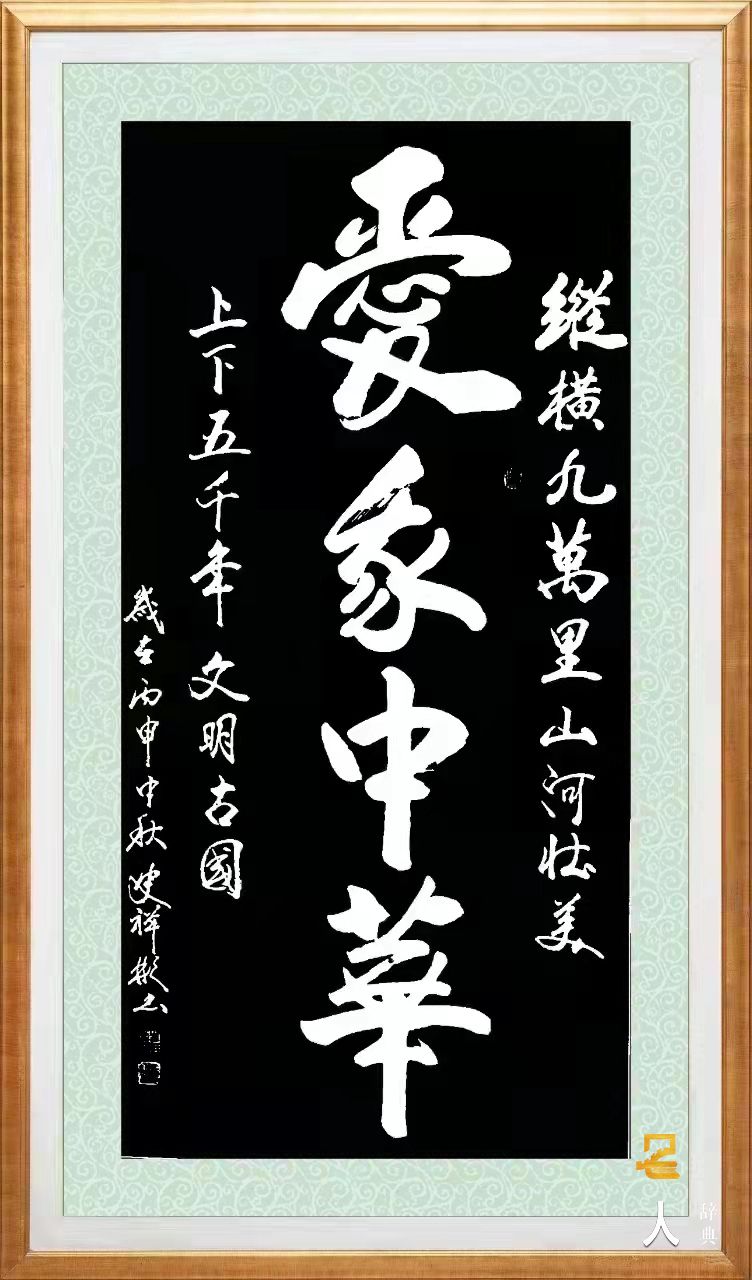 縱橫九萬里山河壯美
愛我中華
上下五千年文明古國
歲在丙申中秋祥彬书
名人
辞典